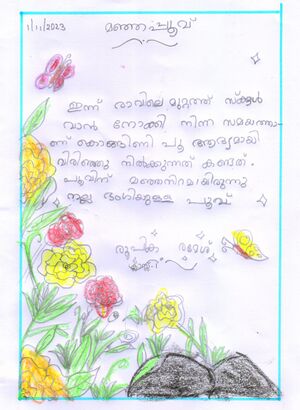 1/11/2023
മഞ്ഞപ്പൂവ്
ഇന്ന് രാവിലെ മുറ്റത്ത് സ്കൂൾ
വാൻ നോക്കി നിന്ന സമയത്താ-
ണ് കൊങ്ങിണി പൂ ആദ്യമായി
വിരിഞ്ഞു നിൽക്കുന്നത് കണ്ടത്.
പൂവിന് മഞ്ഞനിറമായിരുന്നു
നല്ല ഭംഗിയുള്ള പൂവ്
രൂപിക രമേശ്